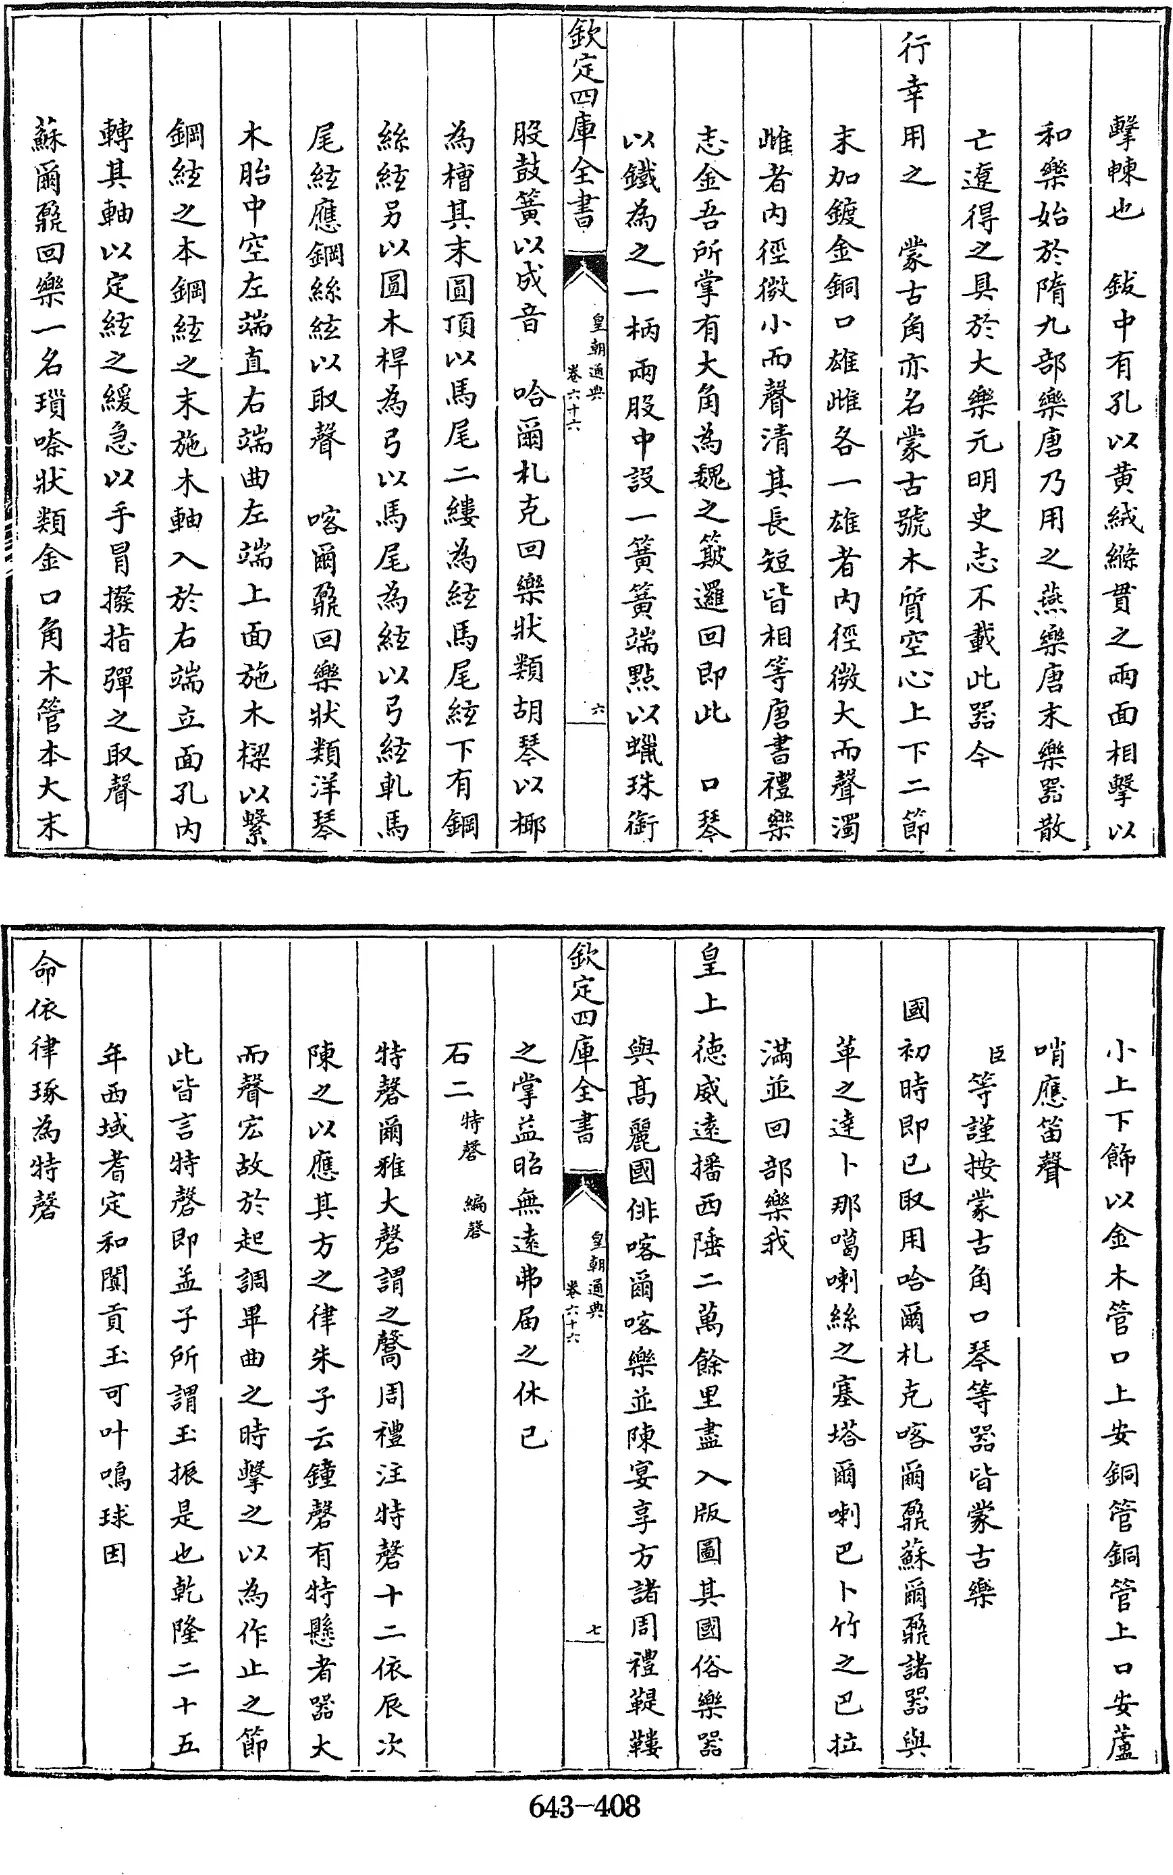 擊朄也　鈸中有孔以黄絨縧貫之兩面相擊以
和樂始於隋九部樂唐乃用之燕樂唐末樂器散
亡遼得之具於大樂元明史志不載此器今
行幸用之　蒙古角亦名蒙古號木質空心上下二節
末加鍍金銅口雄雌各一雄者内徑微大而聲濁
雌者内徑微小而聲清其長短皆相等唐書禮樂
志金吾所掌有大角為魏之簸邏回即此　口琴
以鐵為之一柄兩股中設一簧簧端點以蠟珠銜
欽定四庫全書　皇朝通典卷六十六　六
股鼓簧以成音　哈爾札克回樂狀類胡琴以椰
為槽其末圓頂以馬尾二縷為絃馬尾絃下有鋼
絲絃另以圓木桿為弓以馬尾為絃以弓絃軋馬
尾絃應鋼絲絃以取聲　喀爾鼐回樂狀類洋琴
木胎中空左端直右端曲左端上面施木樑以繫
鋼絃之本鋼絃之末施木軸入於右端立面孔内
轉其軸以定絃之緩急以手冒撥指彈之取聲
蘇爾鼐回樂一名瑣㖠狀類金口角木管本大末
小上下飾以金木管口上安銅管銅管上口安蘆
哨應笛聲
臣等謹按蒙古角口琴等器皆蒙古樂
國初時即已取用哈爾札克喀爾鼐蘇爾鼐諸器與
革之達卜那噶喇絲之塞塔爾喇巴卜竹之巴拉
滿並回部樂我
皇上德威遠播西陲二萬餘里盡入版圖其國俗樂器
與髙麗國俳喀爾喀樂並陳宴享方諸周禮鞮鞻
欽定四庫全書　皇朝通典卷六十六　七
之掌益昭無遠弗届之休已
石二特磬　編磬
特磬爾雅大磬謂之毊周禮注特磬十二依辰次
陳之以應其方之律朱子云鐘磬有特懸者器大
而聲宏故於起調畢曲之時擊之以為作止之節
此皆言特磬即孟子所謂玉振是也乾隆二十五
年西域耆定和闐貢玉可叶鳴球因
命依律琢為特磬
643-408